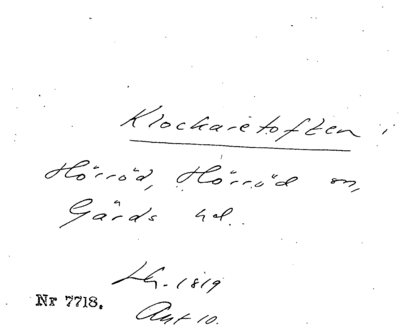 Klockaretoften i
Hörröd, Hörröd sn,
Gärds hd.
Lh. 1819
Nr 7718. Akt 10.